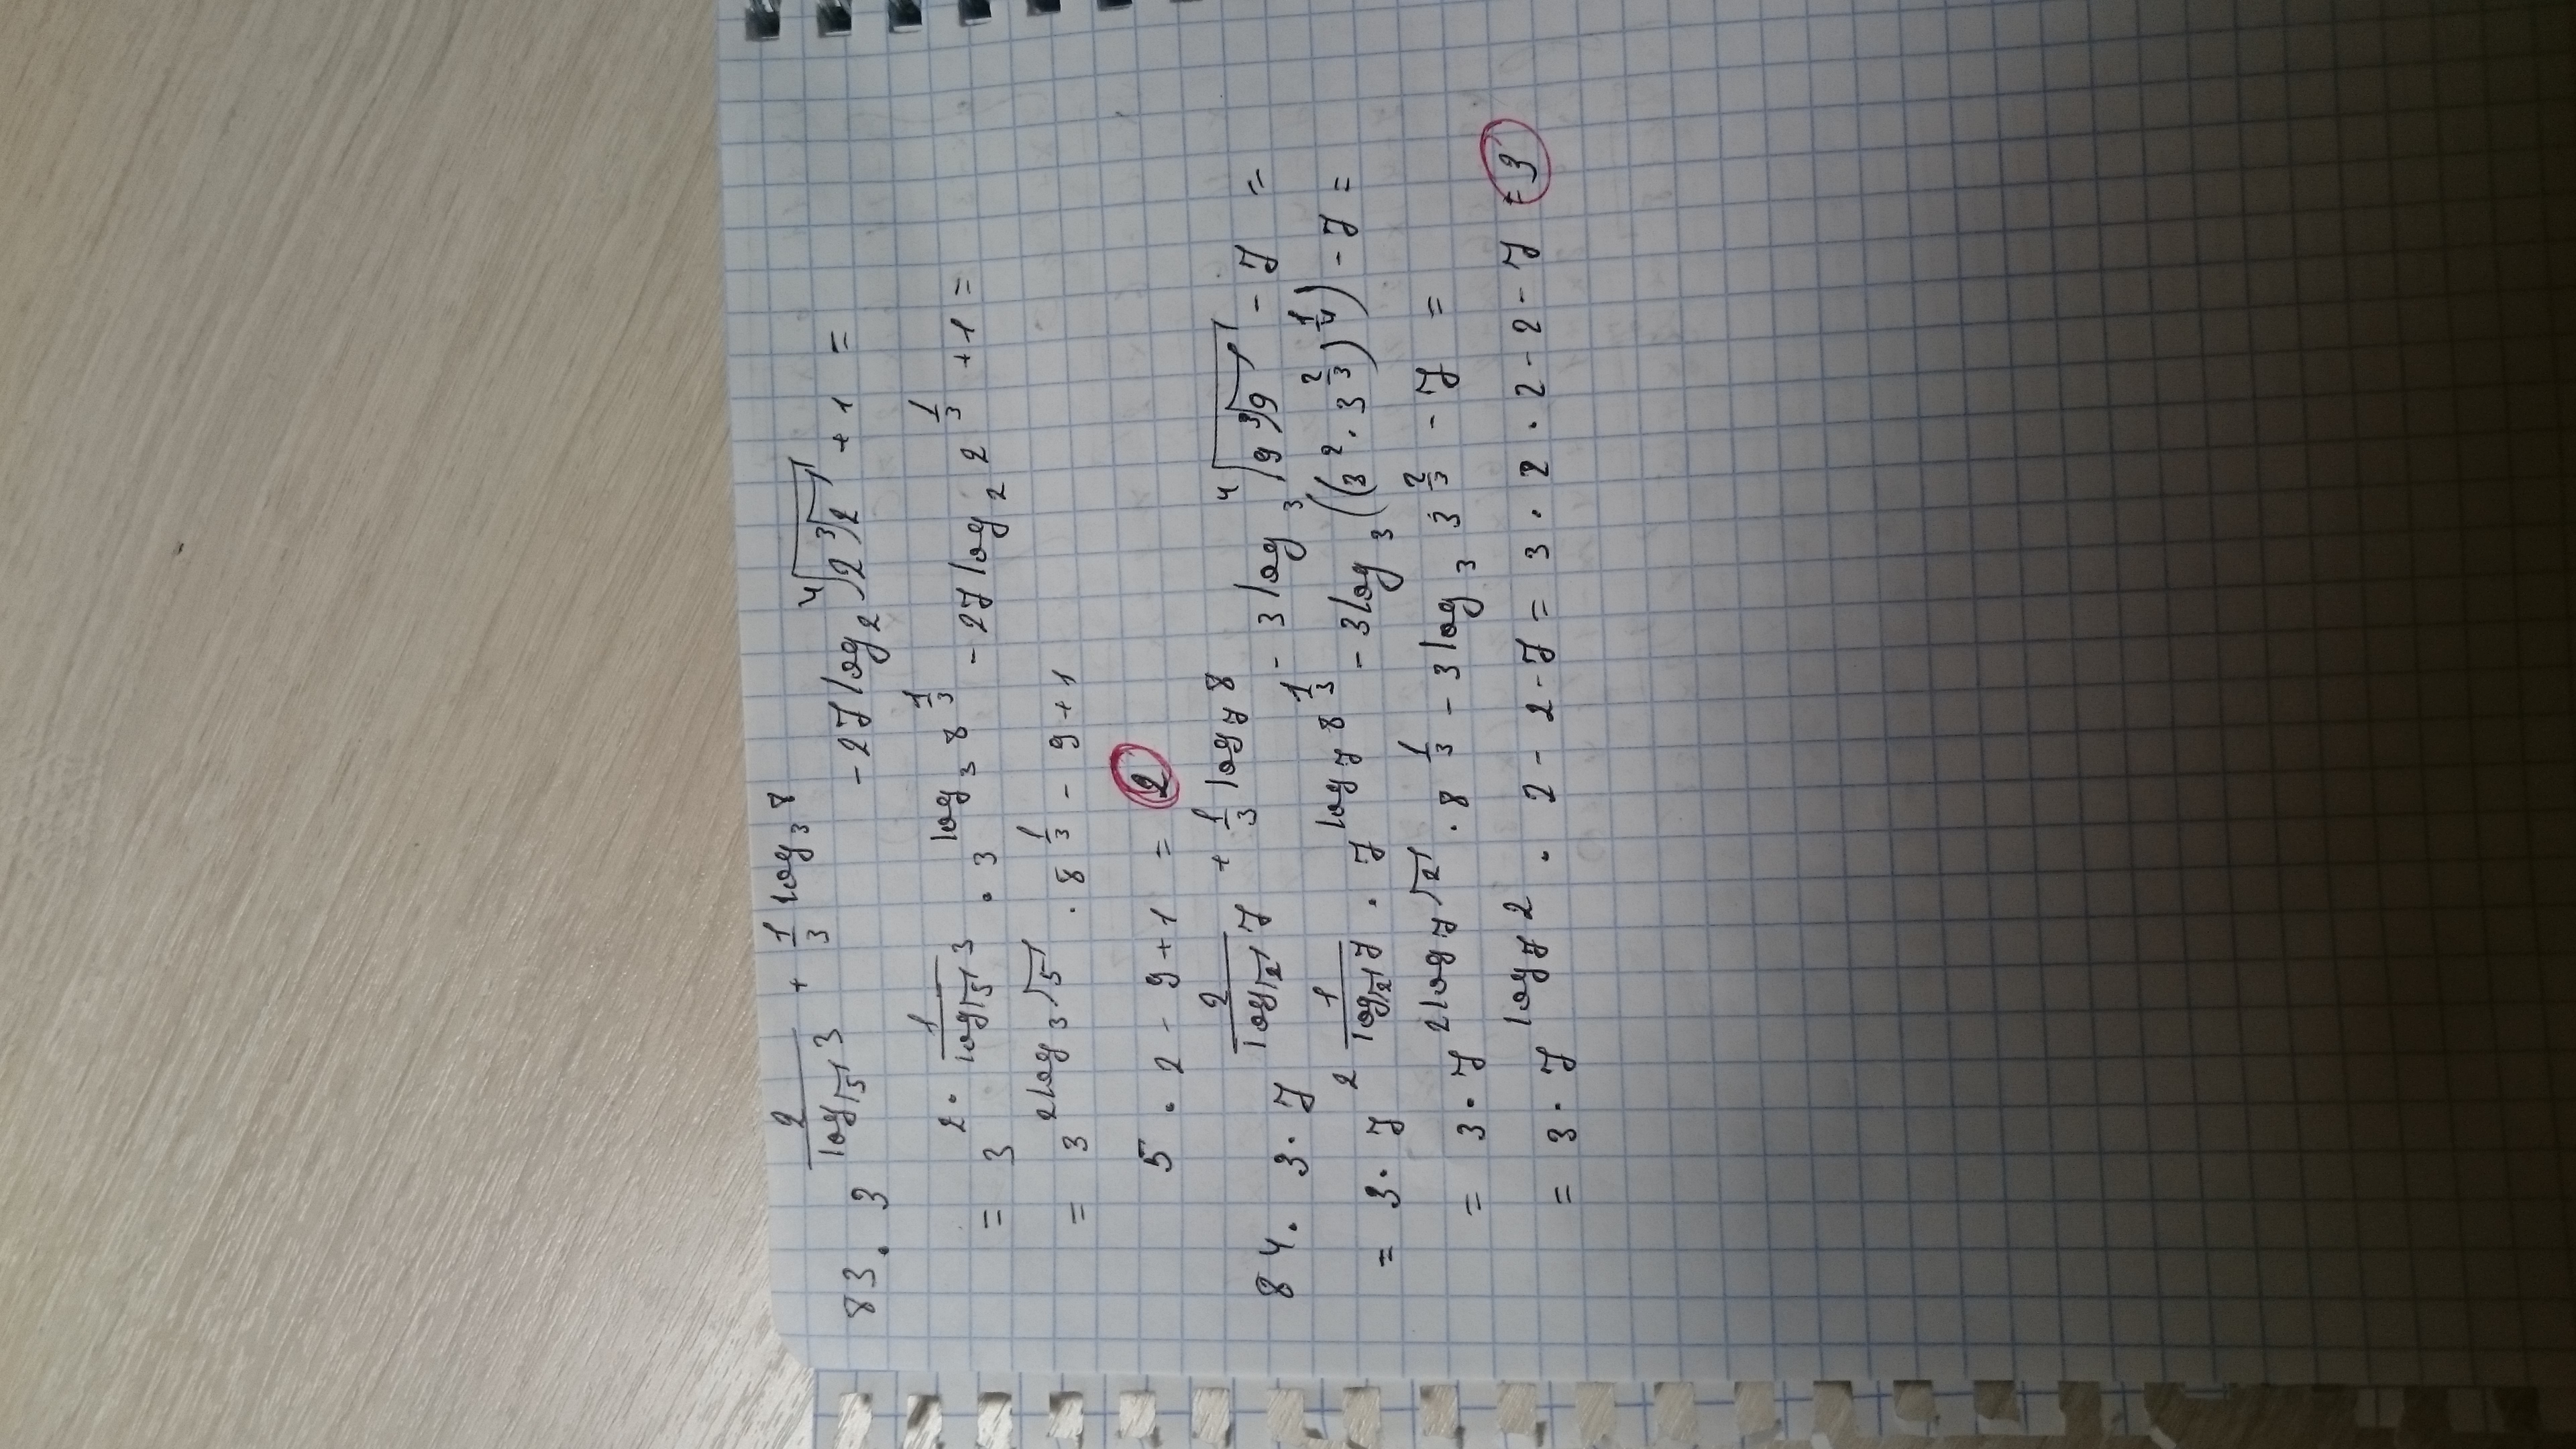 83. 3^(2/(log_√5 3) + 1/3 log_3 8) - 27 log_2 ⁴√(2 ³√2) + 1 =
= 3^(2 · 1/(log_√5 3)) · 3^(log_3 8^(1/3)) - 27 log_2 2^(1/3) + 1 =
= 3^(2 log_3 √5) · 8^(1/3) - 9 + 1
5 · 2 - 9 + 1 = 2
84. 3 · 7^(2/(log_√2 7) + 1/3 log_7 8) - 3 log_3 ⁴√(9 ³√9) - 7 =
= 3 · 7^(2 1/(log_√2 7)) · 7^(log_7 8^(1/3)) - 3 log_3 ((3^2 · 3^(2/3))^(1/4)) - 7 =
= 3 · 7^(2 log_7 √2) · 8^(1/3) - 3 log_3 3^(2/3) - 7 =
= 3 · 7^(log_7 2) · 2 - 2 - 7 = 3 · 2 · 2 - 2 - 7 = 3